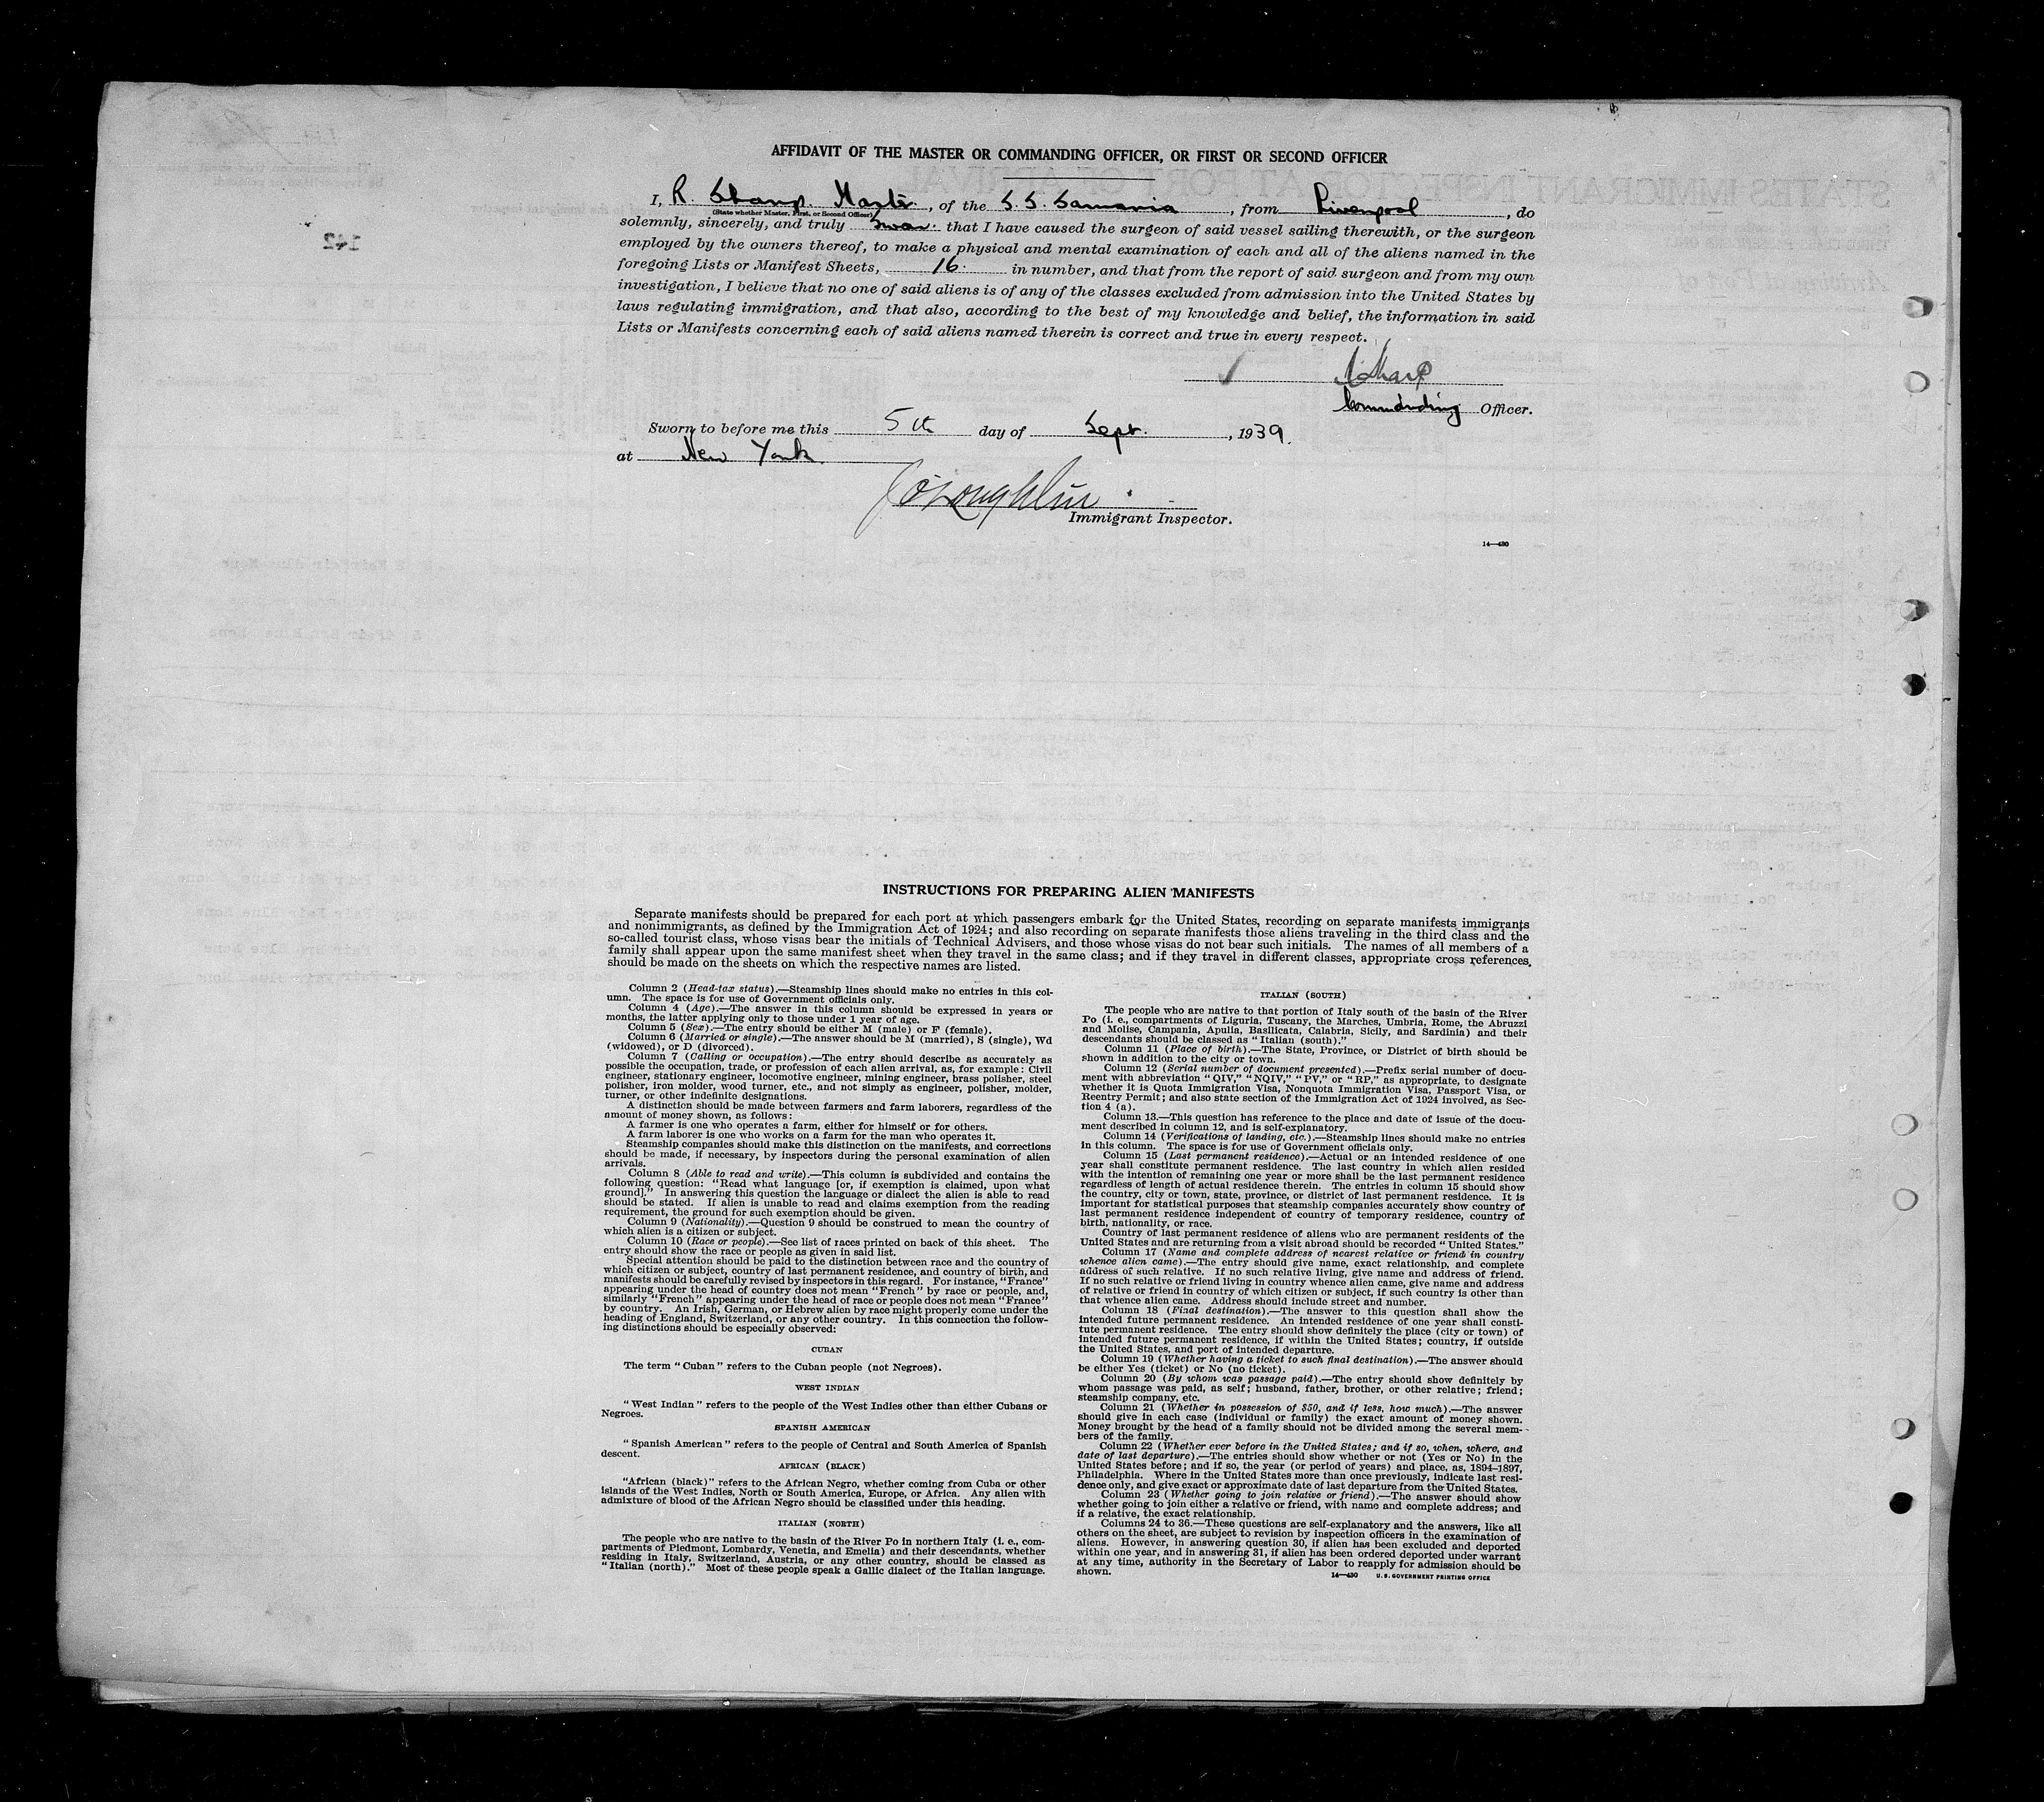 AFFIDAVIT OF THE MASTER OR COMMANDING OFFICER, OR FIRST OR SECOND OFFICER
I, R. Sharp. Master, of the S.S. Samaria, from Liverpool, do
(State whether Master, First, or Second Officer)
solemnly, sincerely, and truly swear that I have caused the surgeon of said vessel sailing therewith, or the surgeon
employed by the owners thereof, to make a physical and mental examination of each and all of the aliens named in the
foregoing Lists or Manifest Sheets, 16. in number, and that from the report of said surgeon and from my own
investigation, I believe that no one of said aliens is of any of the classes excluded from admission into the United States by
laws regulating immigration, and that also, according to the best of my knowledge and belief, the information in said
Lists or Manifests concerning each of said aliens named therein is correct and true in every respect.
Sharp
Commanding Officer.
Sworn to before me this 5th day of Sept., 1939.
at New York
O'Loughlin
Immigrant Inspector.
14—430
142
INSTRUCTIONS FOR PREPARING ALIEN MANIFESTS
Separate manifests should be prepared for each port at which passengers embark for the United States, recording on separate manifests immigrants
and nonimmigrants, as defined by the Immigration Act of 1924; and also recording on separate manifests those aliens traveling in the third class and the
so-called tourist class, whose visas bear the initials of Technical Advisers, and those whose visas do not bear such initials. The names of all members of a
family shall appear upon the same manifest sheet when they travel in the same class; and if they travel in different classes, appropriate cross references
should be made on the sheets on which the respective names are listed.
Column 2 (Head-tax status).—Steamship lines should make no entries in this col-
umn. The space is for use of Government officials only.
Column 4 (Age).—The answer in this column should be expressed in years or
months, the latter applying only to those under 1 year of age.
Column 5 (Sex).—The entry should be either M (male) or F (female).
Column 6 (Married or single).—The answer should be M (married), S (single), Wd
(widowed), or D (divorced).
Column 7 (Calling or occupation).—The entry should describe as accurately as
possible the occupation, trade, or profession of each alien arrival, as, for example: Civil
engineer, stationary engineer, locomotive engineer, mining engineer, brass polisher, steel
polisher, iron molder, wood turner, etc., and not simply as engineer, polisher, molder,
turner, or other indefinite designations.
A distinction should be made between farmers and farm laborers, regardless of the
amount of money shown, as follows:
A farmer is one who operates a farm, either for himself or for others.
A farm laborer is one who works on a farm for the man who operates it.
Steamship companies should make this distinction on the manifests, and corrections
should be made, if necessary, by inspectors during the personal examination of alien
arrivals.
Column 8 (Able to read and write).—This column is subdivided and contains the
following question: "Read what language [or, if exemption is claimed, upon what
ground]." In answering this question the language or dialect the alien is able to read
should be stated. If alien is unable to read and claims exemption from the reading
requirement, the ground for such exemption should be given.
Column 9 (Nationality).—Question 9 should be construed to mean the country of
which alien is a citizen or subject.
Column 10 (Race or people).—See list of races printed on back of this sheet. The
entry should show the race or people as given in said list.
Special attention should be paid to the distinction between race and the country of
which citizen or subject, country of last permanent residence, and country of birth, and
manifests should be carefully revised by inspectors in this regard. For instance, "France"
appearing under the head of country does not mean "French" by race or people, and,
similarly "French" appearing under the head of race or people does not mean "France"
by country. An Irish, German, or Hebrew alien by race might properly come under the
heading of England, Switzerland, or any other country. In this connection the follow-
ing distinctions should be especially observed:
CUBAN
The term "Cuban" refers to the Cuban people (not Negroes).
WEST INDIAN
"West Indian" refers to the people of the West Indies other than either Cubans or
Negroes.
SPANISH AMERICAN
"Spanish American" refers to the people of Central and South America of Spanish
descent.
AFRICAN (BLACK)
"African (black)" refers to the African Negro, whether coming from Cuba or other
islands of the West Indies, North or South America, Europe, or Africa. Any alien with
admixture of blood of the African Negro should be classified under this heading.
ITALIAN (NORTH)
The people who are native to the basin of the River Po in northern Italy (i. e., com-
partments of Piedmont, Lombardy, Venetia, and Emelia) and their descendants, whether
residing in Italy, Switzerland, Austria, or any other country, should be classed as
"Italian (north)." Most of these people speak a Gallic dialect of the Italian language.
ITALIAN (SOUTH)
The people who are native to that portion of Italy south of the basin of the River
Po (i. e., compartments of Liguria, Tuscany, the Marches, Umbria, Rome, the Abruzzi
and Molise, Campania, Apulia, Basilicata, Calabria, Sicily, and Sardinia) and their
descendants should be classed as "Italian (south)."
Column 11 (Place of birth).—The State, Province, or District of birth should be
shown in addition to the city or town.
Column 12 (Serial number of document presented).—Prefix serial number of docu-
ment with abbreviation "QIV," "NQIV," "PV," or "RP," as appropriate, to designate
whether it is Quota Immigration Visa, Nonquota Immigration Visa, Passport Visa, or
Reentry Permit; and also state section of the Immigration Act of 1924 involved, as Sec-
tion 4 (a).
Column 13.—This question has reference to the place and date of issue of the docu-
ment described in column 12, and is self-explanatory.
Column 14 (Verifications of landing, etc.).—Steamship lines should make no entries
in this column. The space is for use of Government officials only.
Column 15 (Last permanent residence).—Actual or an intended residence of one
year shall constitute permanent residence. The last country in which alien resided
with the intention of remaining one year or more shall be the last permanent residence
regardless of length of actual residence therein. The entries in column 15 should show
the country, city or town, state, province, or district of last permanent residence. It is
important for statistical purposes that steamship companies accurately show country of
last permanent residence independent of country of temporary residence, country of
birth, nationality, or race.
Country of last permanent residence of aliens who are permanent residents of the
United States and are returning from a visit abroad should be recorded "United States."
Column 17 (Name and complete address of nearest relative or friend in country
whence alien came).—The entry should give name, exact relationship, and complete
address of such relative. If no such relative living, give name and address of friend.
If no such relative or friend living in country whence alien came, give name and address
of relative or friend in country of which citizen or subject, if such country is other than
that whence alien came. Address should include street and number.
Column 18 (Final destination).—The answer to this question shall show the
intended future permanent residence. An intended residence of one year shall consti-
tute permanent residence. The entry should show definitely the place (city or town) of
intended future permanent residence, if within the United States; country, if outside
the United States, and port of intended departure.
Column 19 (Whether having a ticket to such final destination).—The answer should
be either Yes (ticket) or No (no ticket).
Column 20 (By whom was passage paid).—The entry should show definitely by
whom passage was paid, as self; husband, father, brother, or other relative; friend;
steamship company, etc.
Column 21 (Whether in possession of $50, and if less, how much).—The answer
should give in each case (individual or family) the exact amount of money shown.
Money brought by the head of a family should not be divided among the several mem-
bers of the family.
Column 22 (Whether ever before in the United States; and if so, when, where, and
date of last departure).—The entries should show whether or not (Yes or No) in the
United States before; and if so, the year (or period of years) and place, as, 1894–1897,
Philadelphia. Where in the United States more than once previously, indicate last resi-
dence only, and give exact or approximate date of last departure from the United States.
Column 23 (Whether going to join relative or friend).—The answer should show
whether going to join either a relative or friend, with name and complete address; and
if a relative, the exact relationship.
Columns 24 to 36.—These questions are self-explanatory and the answers, like all
others on the sheet, are subject to revision by inspection officers in the examination of
aliens. However, in answering question 30, if alien has been excluded and deported
within one year, and in answering 31, if alien has been ordered deported under warrant
at any time, authority in the Secretary of Labor to reapply for admission should be
shown.
14—430 U. S. GOVERNMENT PRINTING OFFICE